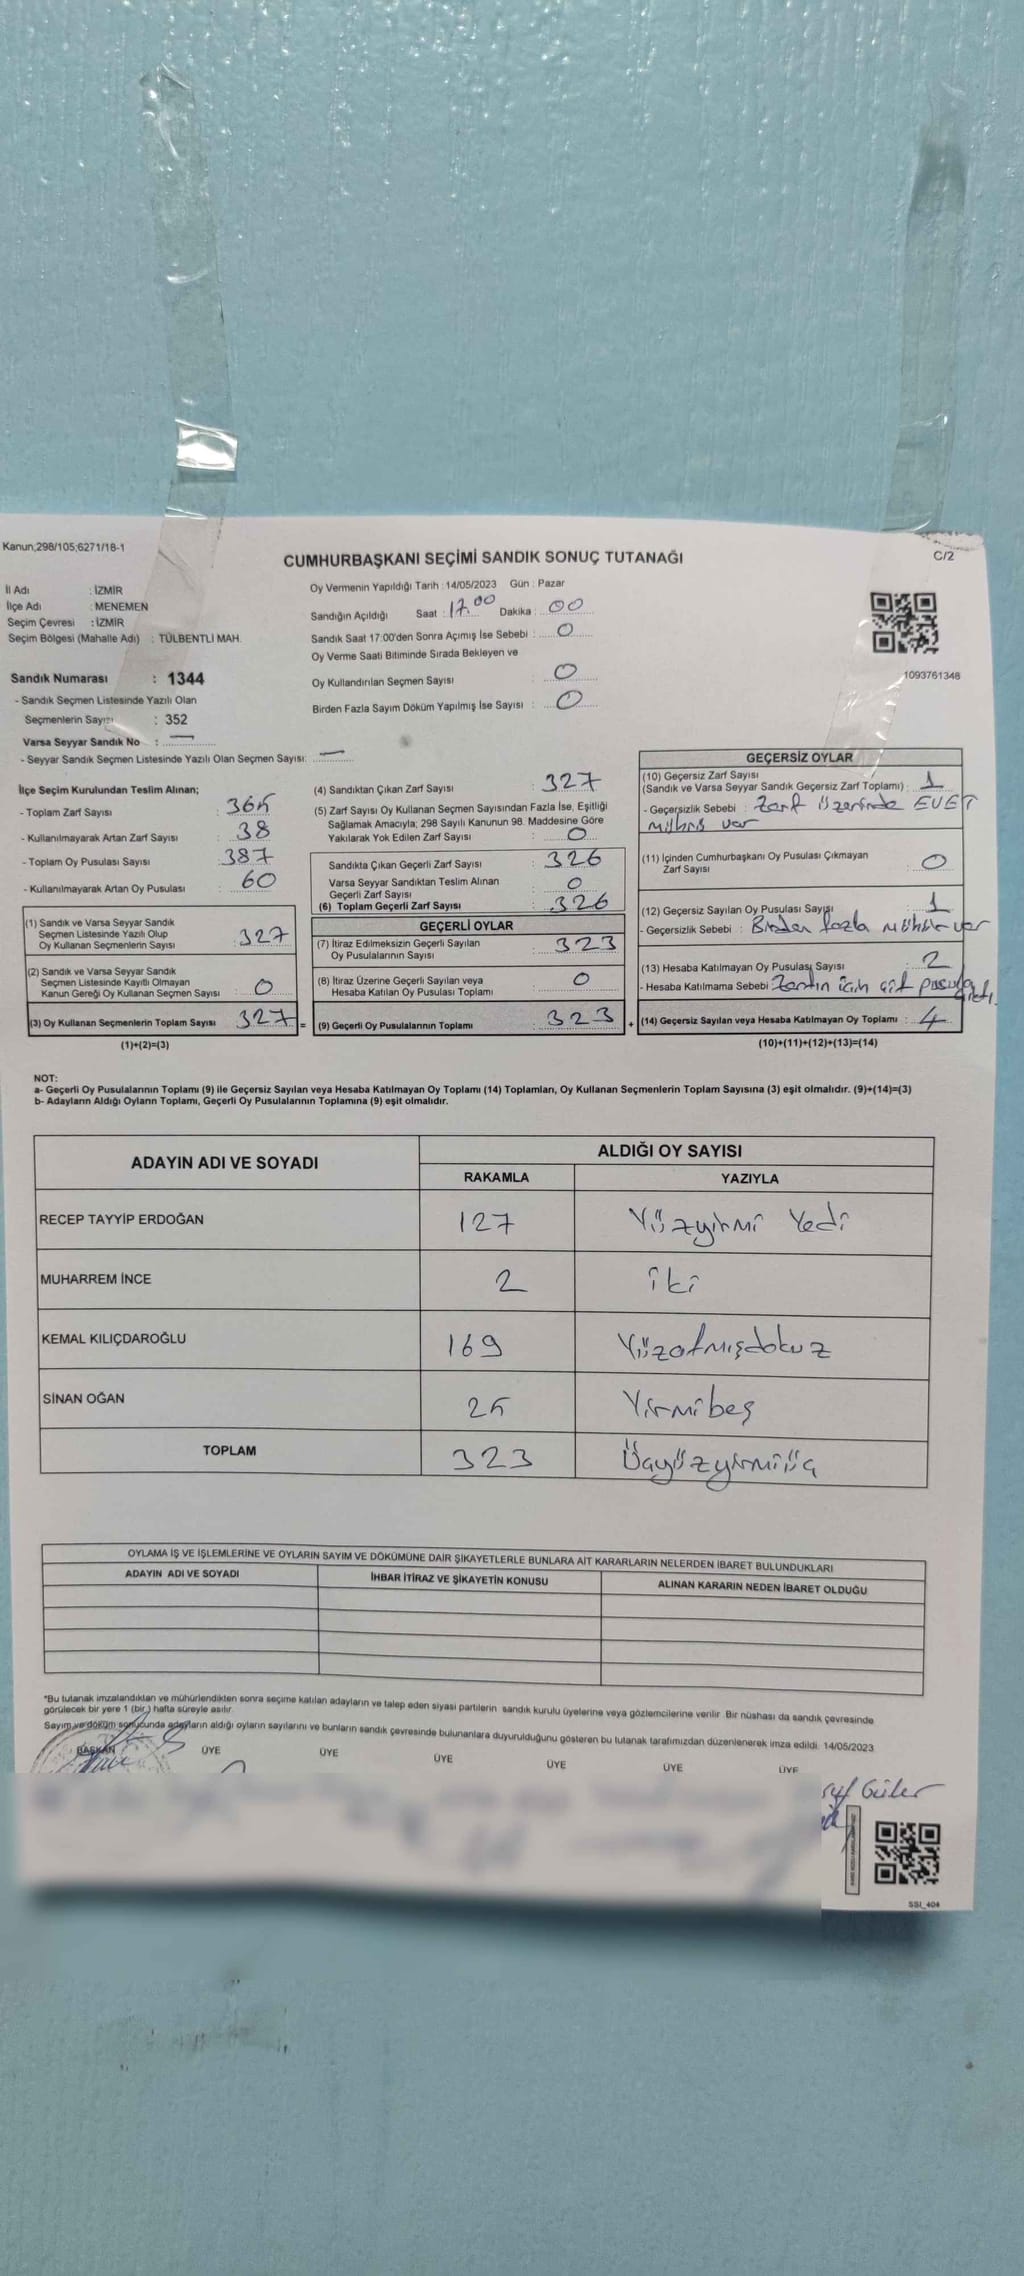 Kanun,298/105;6271/18-1
CUMHURBAŞKANI SEÇİMİ SANDIK SONUÇ TUTANAĞI
C/2
İl Adı : İZMİR
İlçe Adı : MENEMEN
Seçim Çevresi : İZMİR
Seçim Bölgesi (Mahalle Adı) : TÜLBENTLİ MAH.
Sandık Numarası : 1344
- Sandık Seçmen Listesinde Yazılı Olan
Seçmenlerin Sayısı : 352
Varsa Seyyar Sandık No : —
- Seyyar Sandık Seçmen Listesinde Yazılı Olan Seçmen Sayısı: —
Oy Vermenin Yapıldığı Tarih : 14/05/2023 Gün : Pazar
Sandığın Açıldığı Saat : 17.00 Dakika : 00
Sandık Saat 17:00'den Sonra Açımış İse Sebebi : 0
Oy Verme Saati Bitiminde Sırada Bekleyen ve
Oy Kullandırılan Seçmen Sayısı : 0
Birden Fazla Sayım Döküm Yapılmış İse Sayısı : 0
1093761348
İlçe Seçim Kurulundan Teslim Alınan;
- Toplam Zarf Sayısı : 365
- Kullanılmayarak Artan Zarf Sayısı : 38
- Toplam Oy Pusulası Sayısı : 387
- Kullanılmayarak Artan Oy Pusulası : 60
(1) Sandık ve Varsa Seyyar Sandık
Seçmen Listesinde Yazılı Olup
Oy Kullanan Seçmenlerin Sayısı : 327
(2) Sandık ve Varsa Seyyar Sandık
Seçmen Listesinde Kayıtlı Olmayan
Kanun Gereği Oy Kullanan Seçmen Sayısı : 0
(3) Oy Kullanan Seçmenlerin Toplam Sayısı : 327 =
(1)+(2)=(3)
(4) Sandıktan Çıkan Zarf Sayısı : 327
(5) Zarf Sayısı Oy Kullanan Seçmen Sayısından Fazla İse, Eşitliği
Sağlamak Amacıyla; 298 Sayılı Kanunun 98. Maddesine Göre
Yakılarak Yok Edilen Zarf Sayısı : 0
Sandıkta Çıkan Geçerli Zarf Sayısı : 326
Varsa Seyyar Sandıktan Teslim Alınan
Geçerli Zarf Sayısı : 0
(6) Toplam Geçerli Zarf Sayısı : 326
GEÇERLİ OYLAR
(7) İtiraz Edilmeksizin Geçerli Sayılan
Oy Pusulalarının Sayısı : 323
(8) İtiraz Üzerine Geçerli Sayılan veya
Hesaba Katılan Oy Pusulası Toplamı : 0
(9) Geçerli Oy Pusulalarının Toplamı : 323 +
GEÇERSİZ OYLAR
(10) Geçersiz Zarf Sayısı
(Sandık ve Varsa Seyyar Sandık Geçersiz Zarf Toplamı) : 1
- Geçersizlik Sebebi : Zarf üzerinde EVET
mührü var
(11) İçinden Cumhurbaşkanı Oy Pusulası Çıkmayan
Zarf Sayısı : 0
(12) Geçersiz Sayılan Oy Pusulası Sayısı : 1
- Geçersizlik Sebebi : Birden fazla mühür var
(13) Hesaba Katılmayan Oy Pusulası Sayısı : 2
- Hesaba Katılmama Sebebi Zarfın için çift pusula
(14) Geçersiz Sayılan veya Hesaba Katılmayan Oy Toplamı : 4
(10)+(11)+(12)+(13)=(14)
NOT:
a- Geçerli Oy Pusulalarının Toplamı (9) ile Geçersiz Sayılan veya Hesaba Katılmayan Oy Toplamı (14) Toplamları, Oy Kullanan Seçmenlerin Toplam Sayısına (3) eşit olmalıdır. (9)+(14)=(3)
b- Adayların Aldığı Oyların Toplamı, Geçerli Oy Pusulalarının Toplamına (9) eşit olmalıdır.
ADAYIN ADI VE SOYADI
ALDIĞI OY SAYISI
RAKAMLA YAZIYLA
RECEP TAYYİP ERDOĞAN 127 Yüzyirmi Yedi
MUHARREM İNCE 2 iki
KEMAL KILIÇDAROĞLU 169 Yüzatmışdokuz
SİNAN OĞAN 25 Yirmibeş
TOPLAM 323 Üçyüzyirmiüç
OYLAMA İŞ VE İŞLEMLERİNE VE OYLARIN SAYIM VE DÖKÜMÜNE DAİR ŞİKAYETLERLE BUNLARA AİT KARARLARIN NELERDEN İBARET BULUNDUKLARI
ADAYIN ADI VE SOYADI İHBAR İTİRAZ VE ŞİKAYETİN KONUSU ALINAN KARARIN NEDEN İBARET OLDUĞU
*Bu tutanak imzalandıktan ve mühürlendikten sonra seçime katılan adayların ve talep eden siyasi partilerin sandık kurulu üyelerine veya gözlemcilerine verilir. Bir nüshası da sandık çevresinde
görülecek bir yere 1 (bir) hafta süreyle asılır.
Sayım ve döküm sonucunda adayların aldığı oyların sayılarını ve bunların sandık çevresinde bulunanlara duyurulduğunu gösteren bu tutanak tarafımızdan düzenlenerek imza edildi. 14/05/2023
BAŞKAN ÜYE ÜYE ÜYE ÜYE ÜYE ÜYE
Güler
SSI_404